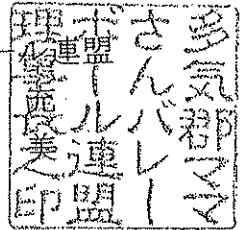 多気郡ママ
さんバレー
ボール連盟
理事長之印
連盟